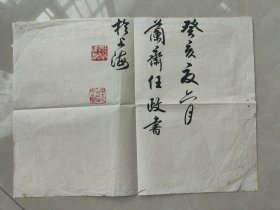 癸亥夏六月
蘭齋任政書
於上海